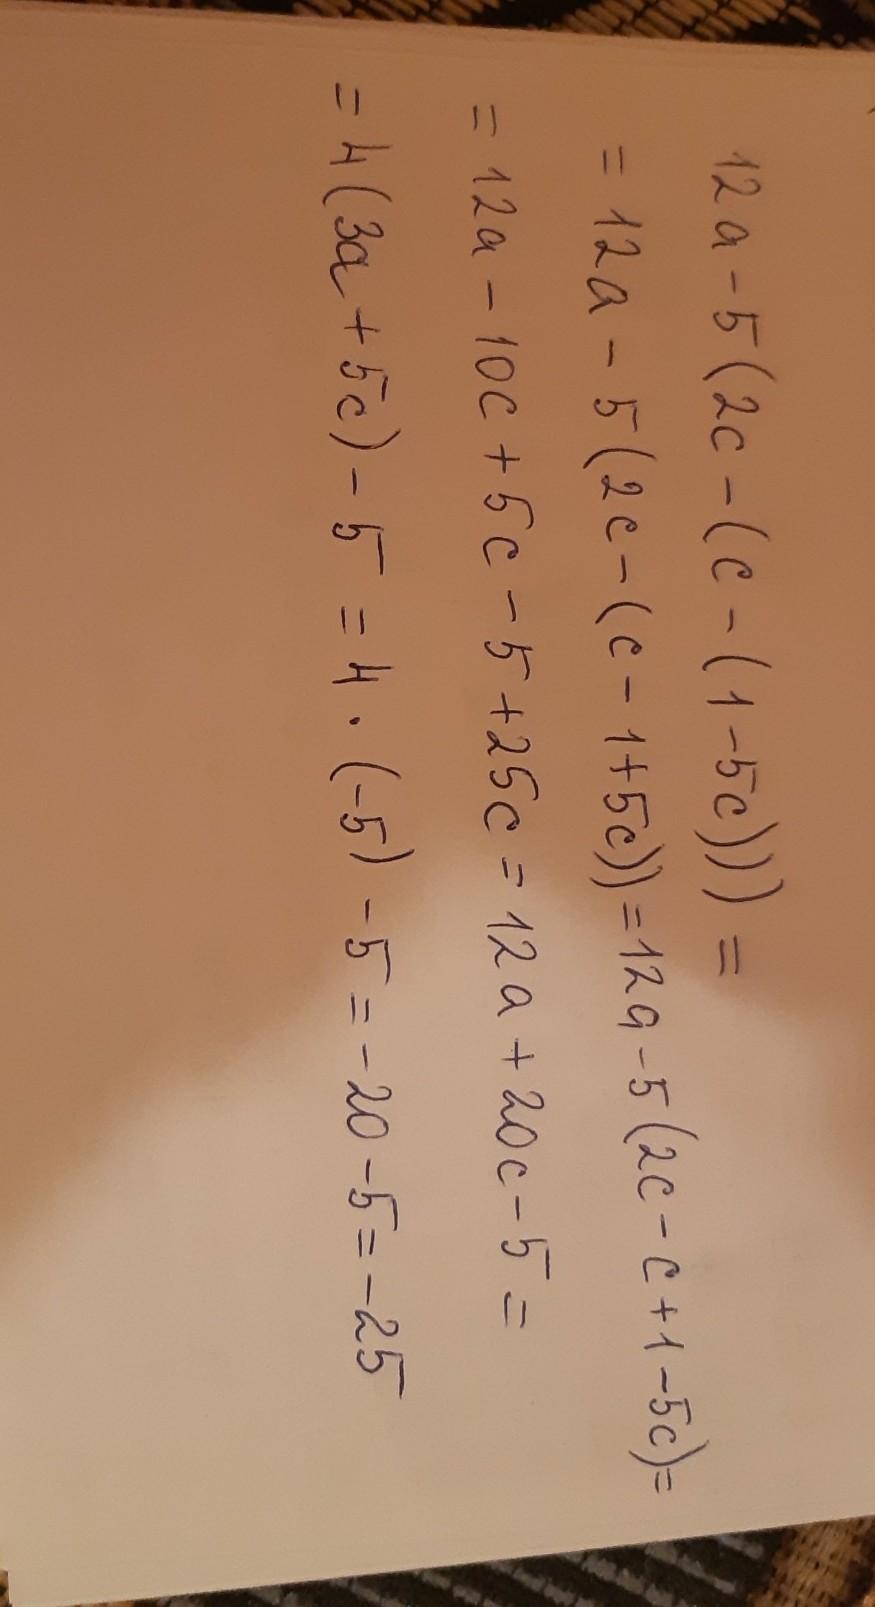 12a-5(2c-(c-(1-5c)))=
=12a-5(2c-(c-1+5c))=12a-5(2c-c+1-5c)=
=12a-10c+5c-5+25c=12a+20c-5=
=4(3a+5c)-5=4·(-5)-5=-20-5=-25